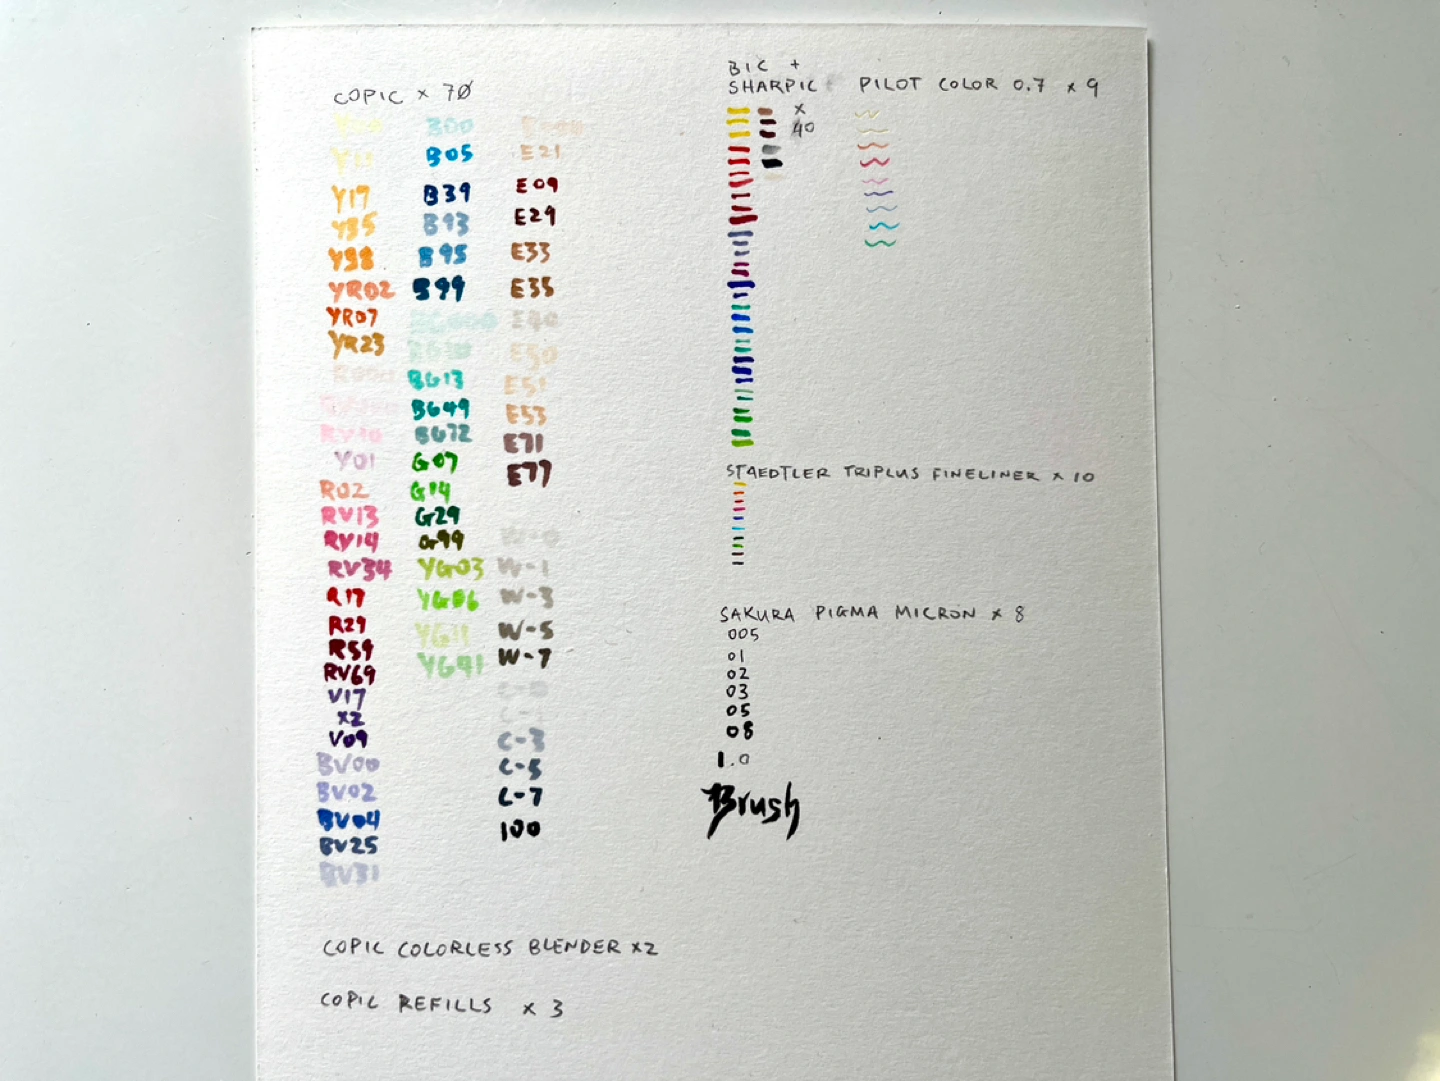 COPIC x 70
Y11
Y17
Y35
Y38
YR02
YR07
YR23
R000
RV10
V01
R02
RV13
RV14
RV34
R17
R29
R59
RV69
V17
x2
V09
BV00
BV02
BV04
BV25
BV31
B00
B05
B39
B93
B95
B99
BG13
BG49
BG72
G07
G14
G29
G99
YG03
YG06
YG11
YG41
E21
E09
E29
E33
E35
E40
E50
E51
E53
E71
E77
W-0
W-1
W-3
W-5
W-7
C-0
C-1
C-3
C-5
C-7
100
COPIC COLORLESS BLENDER x2
COPIC REFILLS x 3
BIC +
SHARPIE
x
40
PILOT COLOR 0.7 x 9
STAEDTLER TRIPLUS FINELINER x 10
SAKURA PIGMA MICRON x 8
005
01
02
03
05
08
1.0
Brush